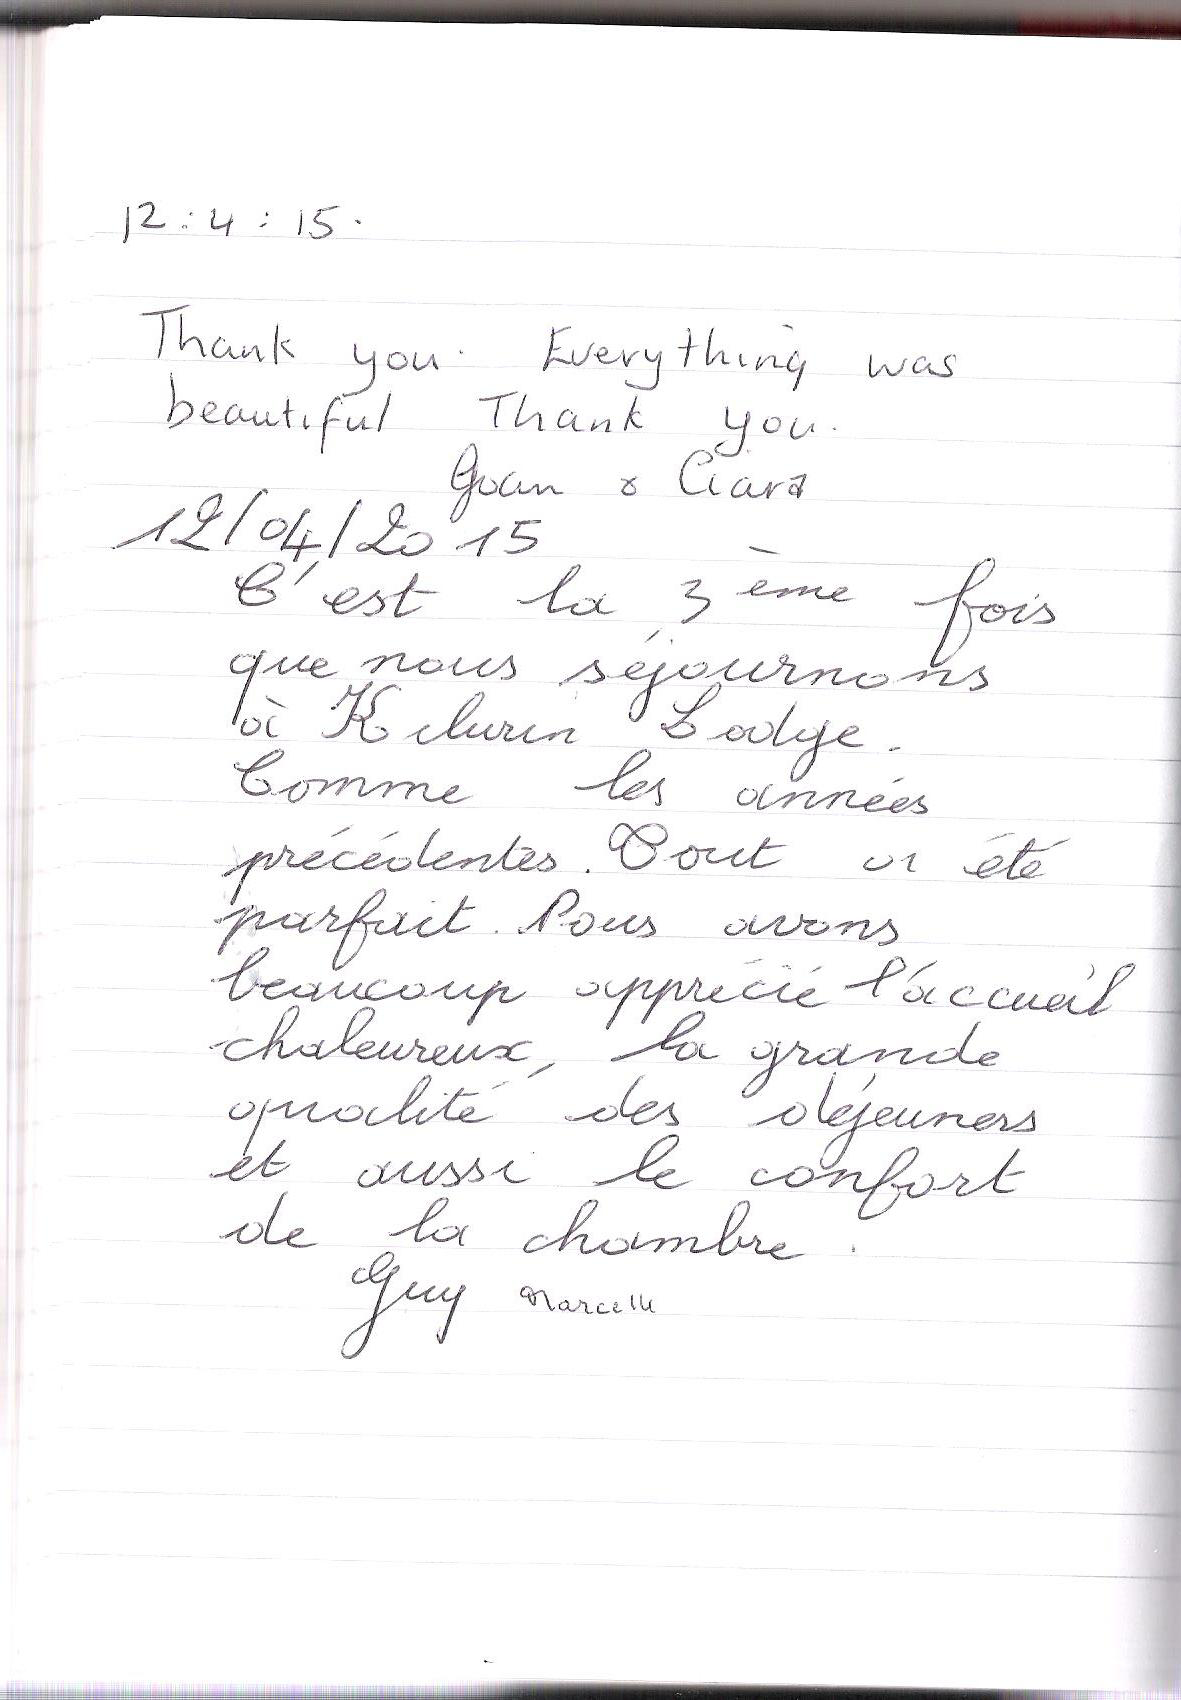 12:4:15.
Thank you. Everything was
beautiful Thank you.
Joan & Ciara
12/04/2015
C'est la 3ème fois
que nous séjournons
à Kilurin Lodge.
Comme les années
précédentes. Tout a été
parfait. Nous avons
beaucoup apprécié l'accueil
chaleureux, la grande
qualité des déjeuners
et aussi le confort
de la chambre.
Guy Marcelle